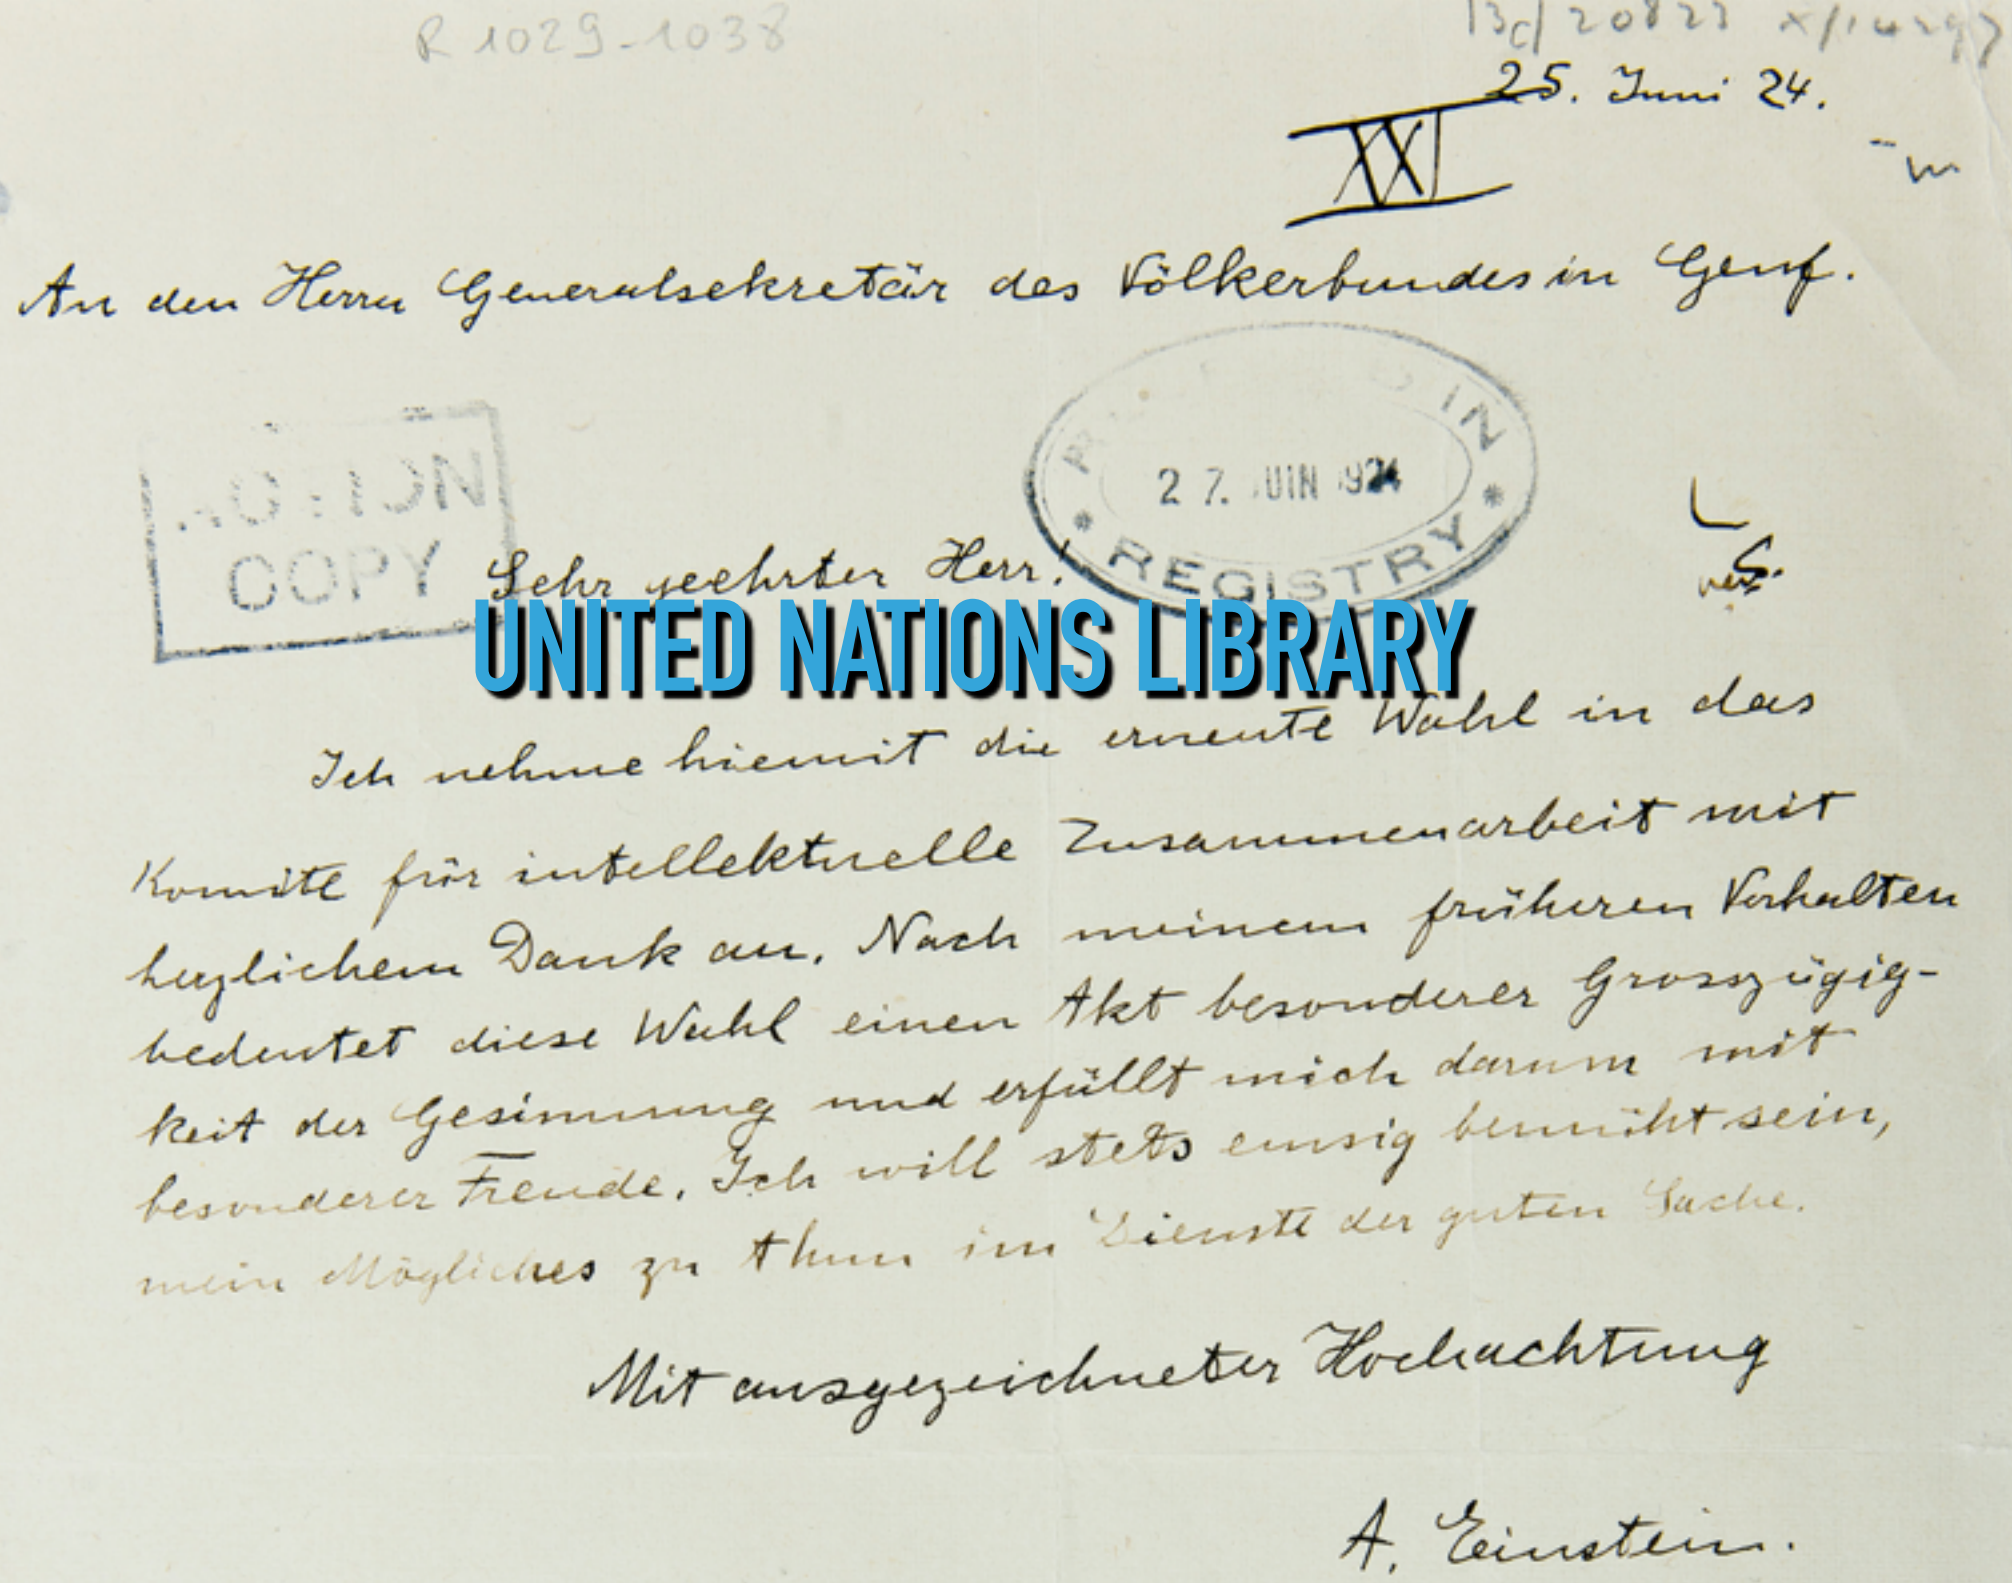 R 1029-1038
25. Juni 24.
XXI
An den Herrn Generalsekretär des Völkerbundes in Genf.
ACTION
COPY
RECEIVED IN
27. JUIN 1924
REGISTRY
Sehr geehrter Herr!
UNITED NATIONS LIBRARY
Ich nehme hiemit die erneute Wahl in das
Komite für intellektuelle Zusammenarbeit mit
herzlichem Dank an. Nach meinem früheren Verhalten
bedeutet diese Wahl einen Akt besonderer Grosszügig-
keit der Gesinnung und erfüllt mich darum mit
besonderer Freude. Ich will stets emsig bemüht sein,
mein Mögliches zu thun im Dienste der guten Sache.
Mit ausgezeichneter Hochachtung
A. Einstein.